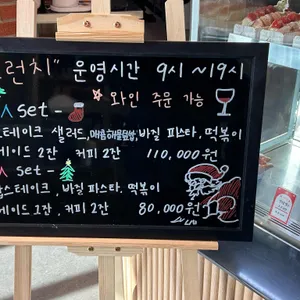 런치" 운영시간 9시 ~19시
와인 주문 가능
set -
스테이크 샐러드, 매콤해물덮밥, 바질 파스타, 떡볶이
에이드 2잔 커피 2잔 110,000원
set -
스테이크, 바질 파스타, 떡볶이
에이드 1잔, 커피 2잔 80,000원